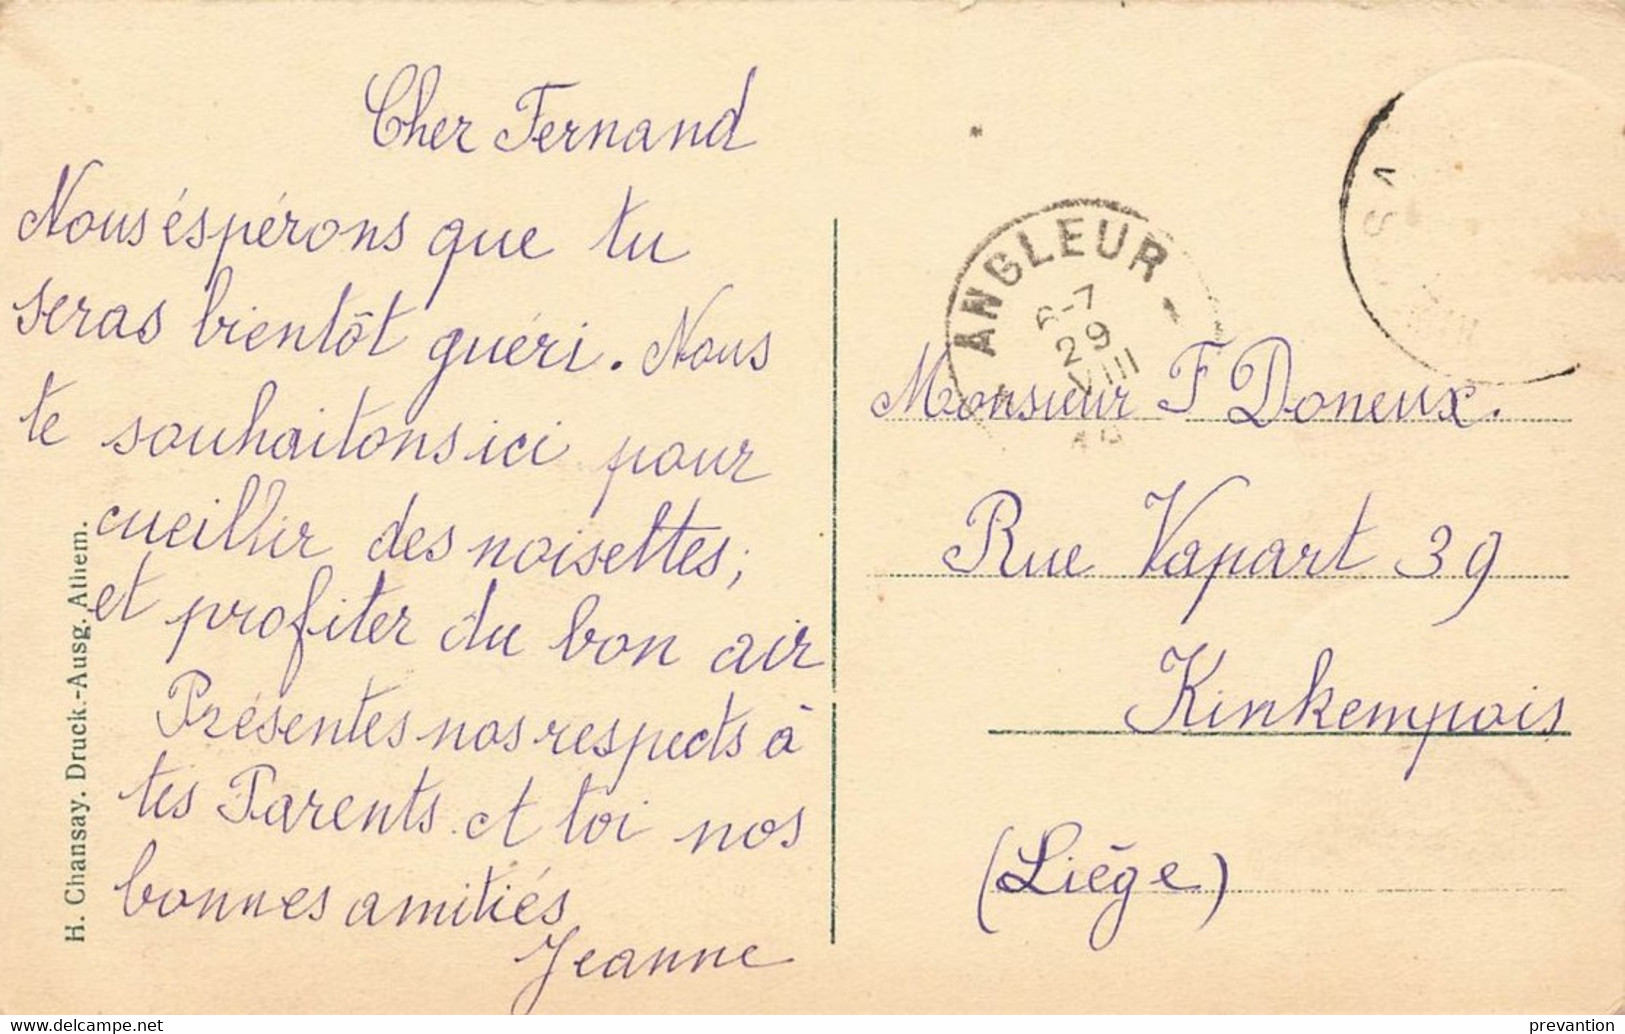 Cher Fernand
Nous éspérons que tu
seras bientôt guéri. Nous
te souhaitons ici pour
cueillir des noisettes;
et profiter du bon air
Présentes nos respects à
tes Parents et toi nos
bonnes amitiés
Jeanne
H. Chansay. Druck.-Ausg. Athem.
ANGLEUR
6-7
29
VIII
SA
Monsieur F Doneux.
Rue Vapart 39
Kinkempois
(Liége)
delcampe.net
prevantion